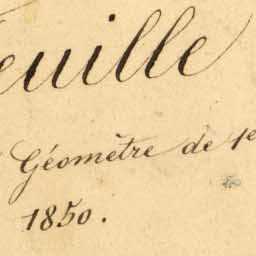 euille
Géomètre de 1e
1850.